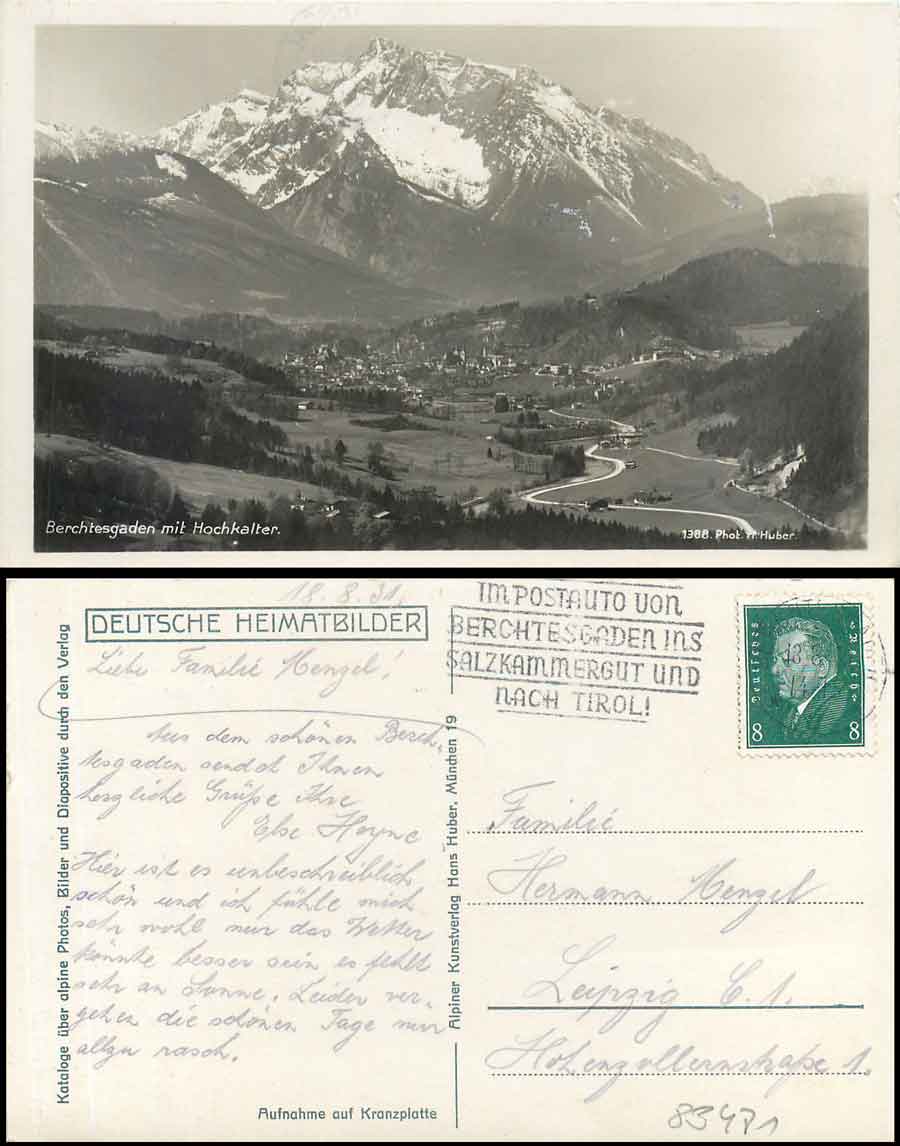 Berchtesgaden mit Hochkalter.
1388. Phot. H. Huber.
18. 8. 31.
DEUTSCHE HEIMATBILDER
Liebe Familie Menzel!
Aus dem schönen Berch-
tesgaden sendet Ihnen
herzliche Grüße Ihre
Else Heyne
Hier ist es unbeschreiblich
schön und ich fühle mich
sehr wohl nur das Wetter
könnte besser sein es fehlt
sehr an Sonne. Leider ver-
gehen die schönen Tage nur
allzu rasch.
Aufnahme auf Kranzplatte
Kataloge über alpine Photos, Bilder und Diapositive durch den Verlag
Alpiner Kunstverlag Hans Huber, München 19
IM POSTAUTO VON
BERCHTESGADEN INS
SALZKAMMERGUT UND
NACH TIROL!
Deutsches Reich
8 8
Familie
Hermann Menzel
Leipzig C. 1.
Hohenzollernstraße 1.
83471